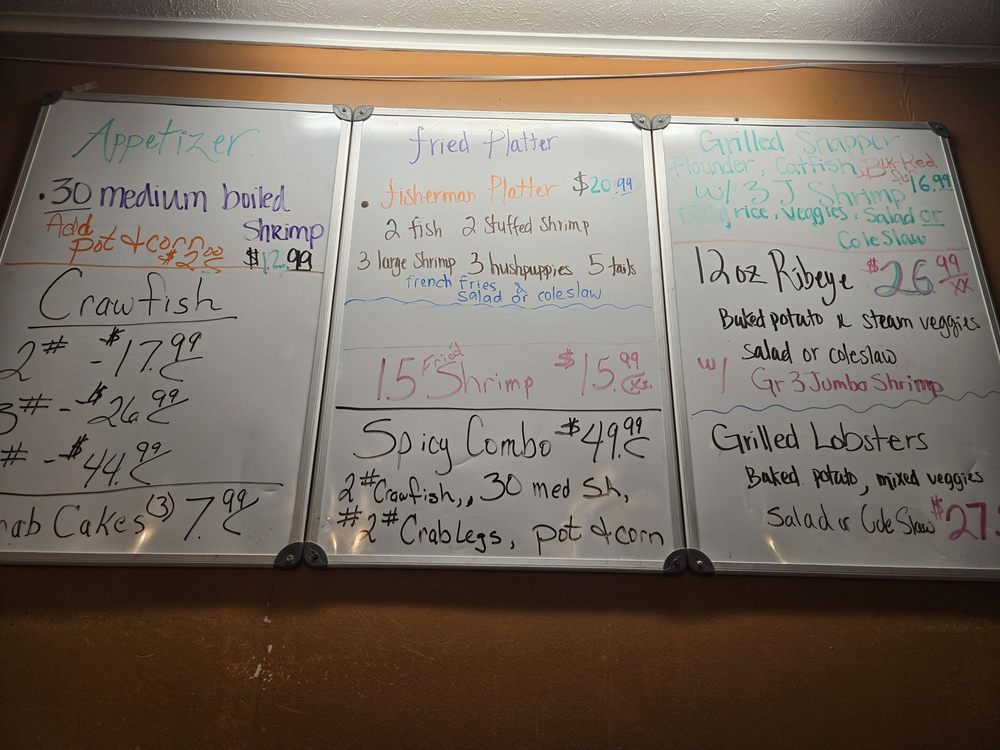 Appetizer
. 30 medium boiled
Shrimp
Add
pot & corn
$2.00
$12.99
Crawfish
2# - $17.99
3# - $26.99
# - $44.99
Cakes (3) 7.99
fried Platter
. fisherman Platter $20.99
2 fish 2 stuffed shrimp
3 large shrimp 3 hushpuppies 5 tails
french fries &
salad or coleslaw
15 Fried Shrimp $15.99
Spicy Combo $49.99
2# Crawfish,, 30 med sh,
#2# Crab Legs, pot & corn
Grilled Snapper
flounder, Catfish, Red
w/ 3 J Shrimp 16.99
rice, veggies, Salad or
Cole Slaw
12 oz Ribeye $26.99
Baked potato & steam veggies
salad or coleslaw
w/ Gr 3 Jumbo Shrimp
Grilled Lobsters
Baked potato, mixed veggies
Salad or Cole Slaw $27.